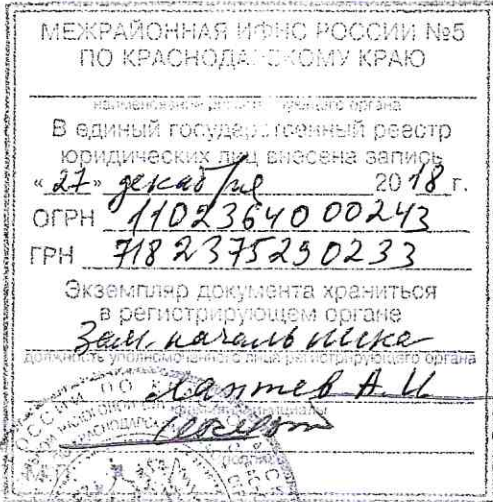 МЕЖРАЙОННАЯ ИФНС РОССИИ №5
ПО КРАСНОДАРСКОМУ КРАЮ
наименование регистрирующего органа
В единый государственный реестр
юридических лиц внесена запись
«27» декабря 2018 г.
ОГРН 1102364000243
ГРН 7182375290233
Экземпляр документа храниться
в регистрирующем органе
Зам. начальника
должность уполномоченного лица регистрирующего органа
А.И.
фамилия, инициалы